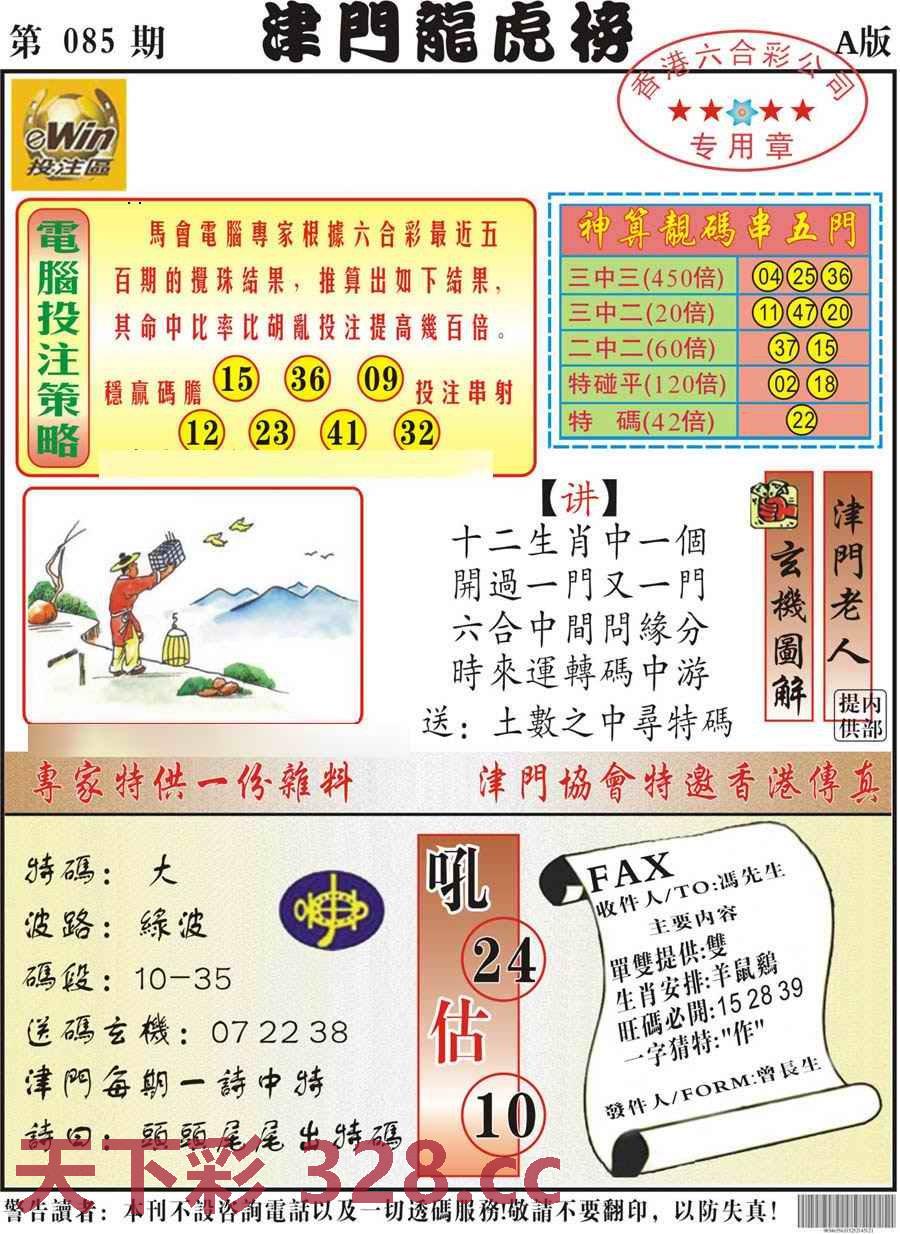 第 085 期
津門龍虎榜
A版
香港六合彩公司
专用章
eWin
投注區
電腦投注策略
馬會電腦專家根據六合彩最近五
百期的攪珠結果，推算出如下結果，
其命中比率比胡亂投注提高幾百倍。
穩贏碼膽 15 36 09 投注串射
12 23 41 32
神算靚碼串五門
三中三(450倍) 04 25 36
三中二(20倍) 11 47 20
二中二(60倍) 37 15
特碰平(120倍) 02 18
特 碼(42倍) 22
【讲】
十二生肖中一個
開過一門又一門
六合中間問緣分
時來運轉碼中游
送：土數之中尋特碼
玄機圖解
津門老人
内部提供
專家特供一份雜料
津門協會特邀香港傳真
特碼：大
波路：綠波
碼段：10-35
送碼玄機：07 22 38
津門每期一詩中特
詩曰：頭頭尾尾出特碼
吼
24
估
10
FAX
收件人/TO:馮先生
主要内容
單雙提供:雙
生肖安排:羊鼠鷄
旺碼必開:15 28 39
一字猜特:"作"
發件人/FORM:曾長生
天下彩 328.cc
警告讀者：本刊不設咨詢電話以及一切透碼服務!敬請不要翻印，以防失真!